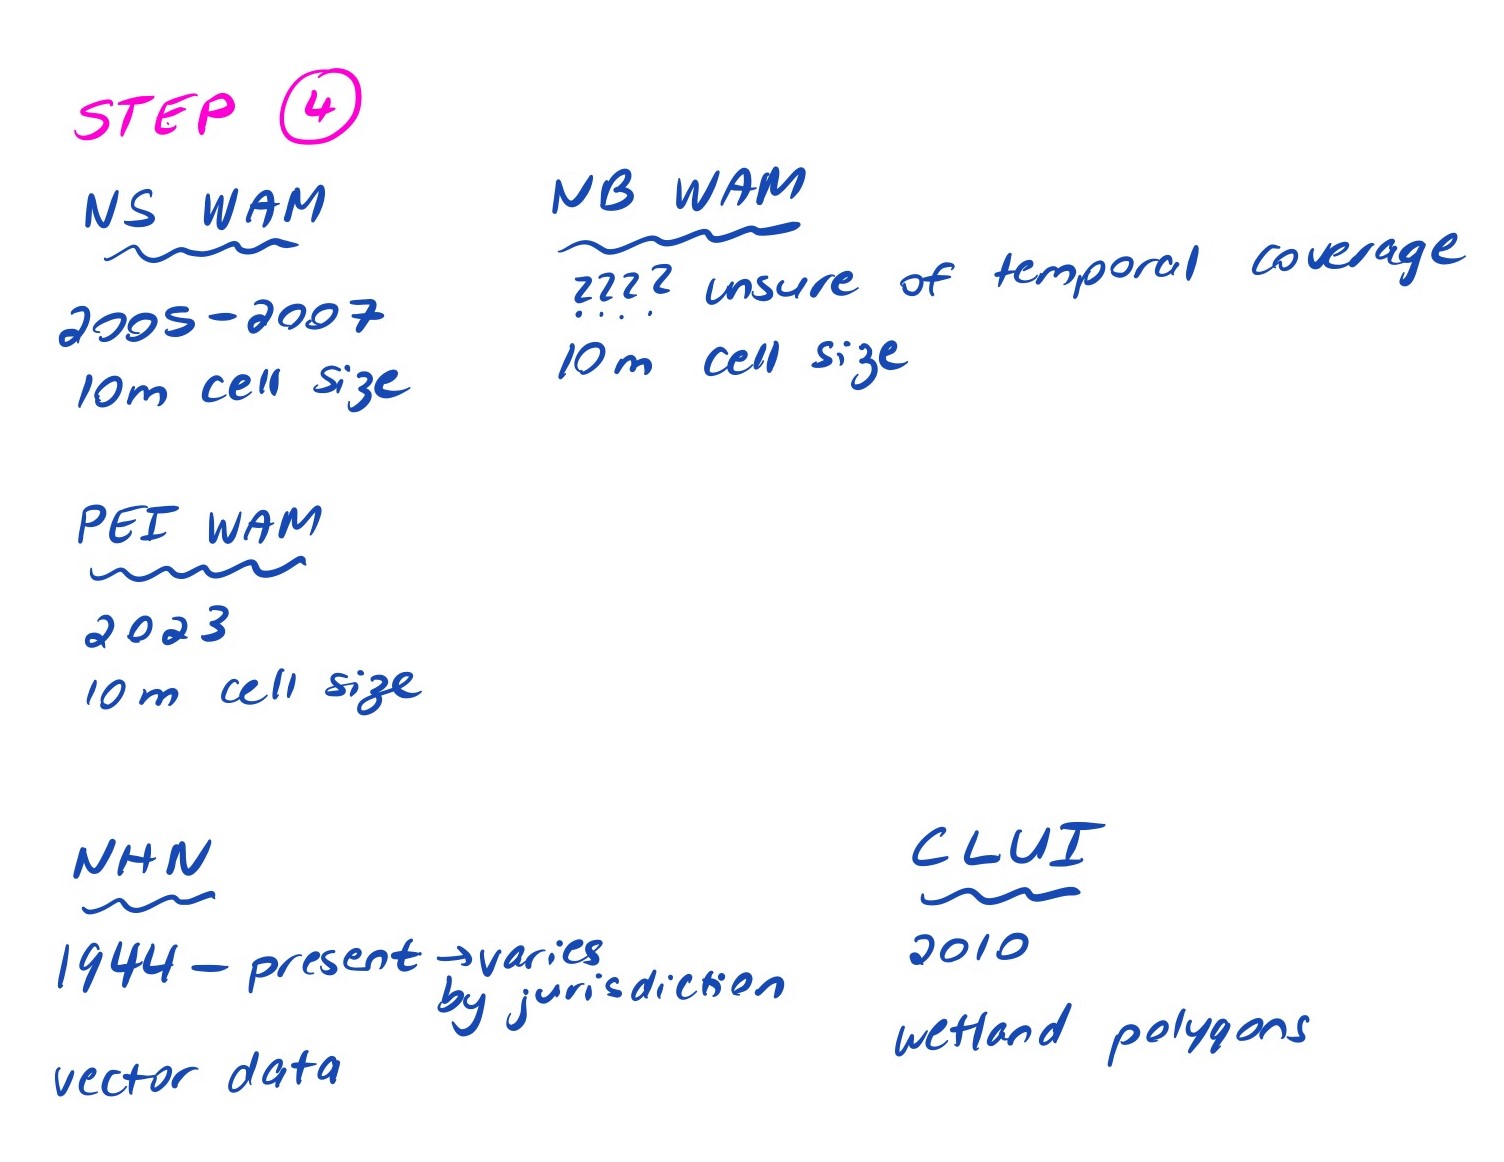 STEP 4
NS WAM
2005-2007
10m cell size
NB WAM
???? unsure of temporal coverage
10m cell size
PEI WAM
2023
10m cell size
NHN
1944 - present → varies
by jurisdiction
vector data
CLUI
2010
wetland polygons